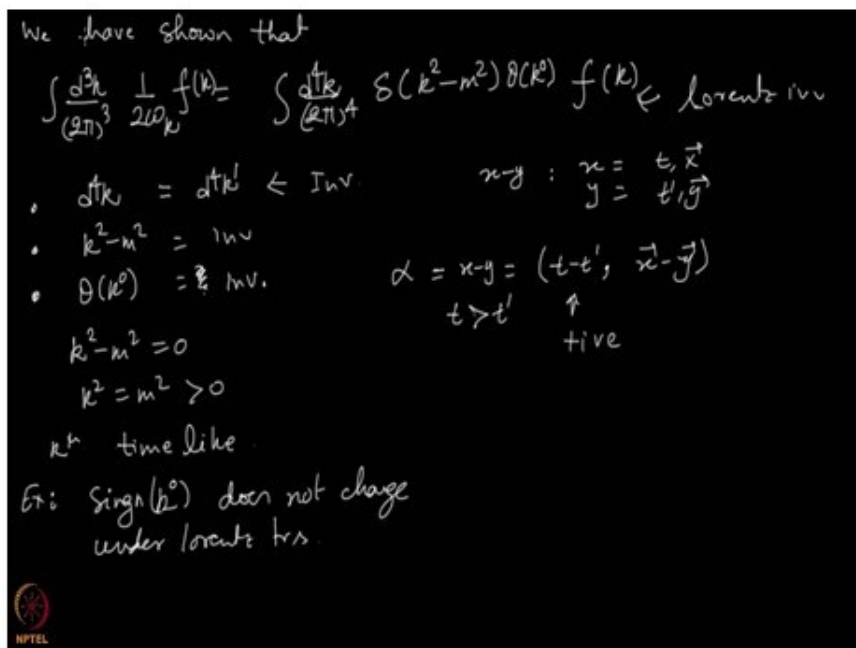 We have shown that
∫ d³k/(2π)³ 1/2ω_k f(k) = ∫ d⁴k/(2π)⁴ δ(k²-m²) θ(k⁰) f(k) ← lorentz inv
• d⁴k = d⁴k' ← Inv.
• k²-m² = inv
• θ(k⁰) = inv.
k²-m² = 0
k² = m² > 0
k^μ time like.
Ex: Sirgn(k⁰) does not chage
under lorentz trs.
x-y : x = t, x⃗
y = t', y⃗
α = x-y = (t-t', x⃗-y⃗)
t > t' ↑
+ive
NPTEL